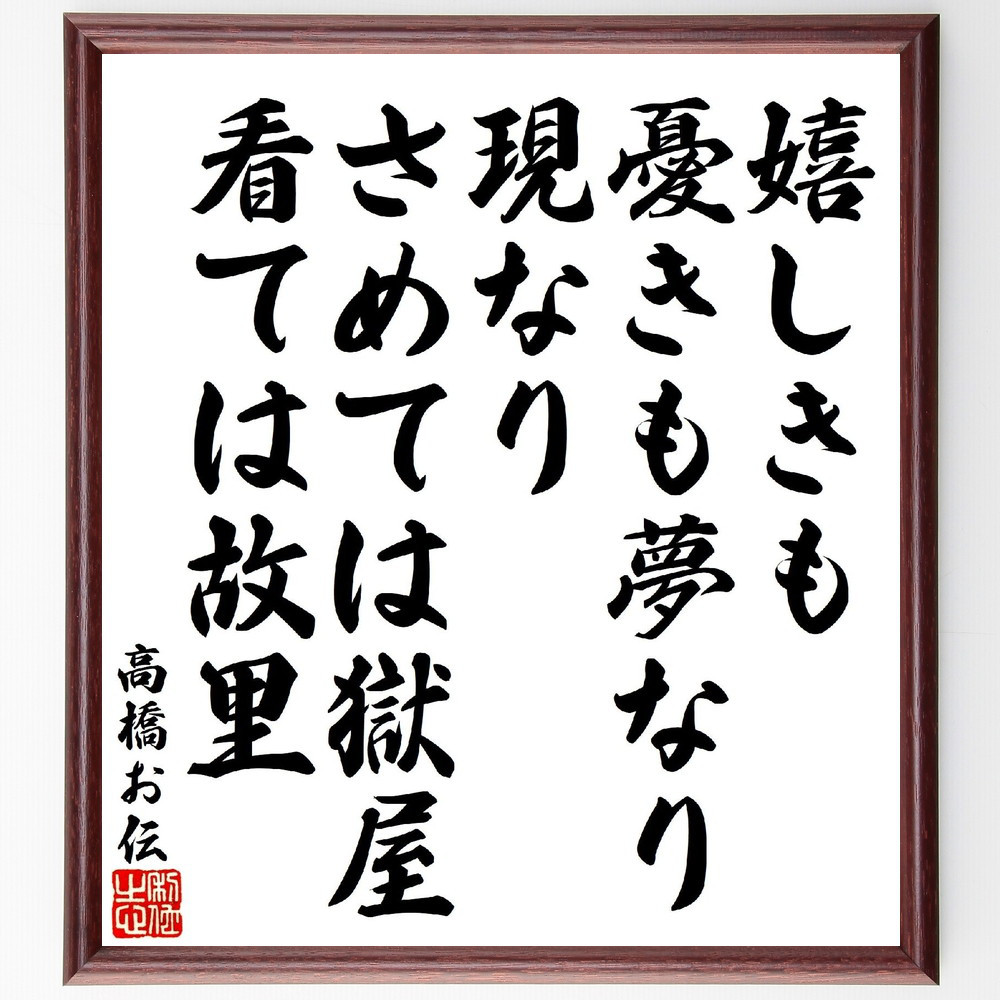 嬉しきも
憂きも夢なり
現なり
さめては獄屋
看ては故里
高橋お伝